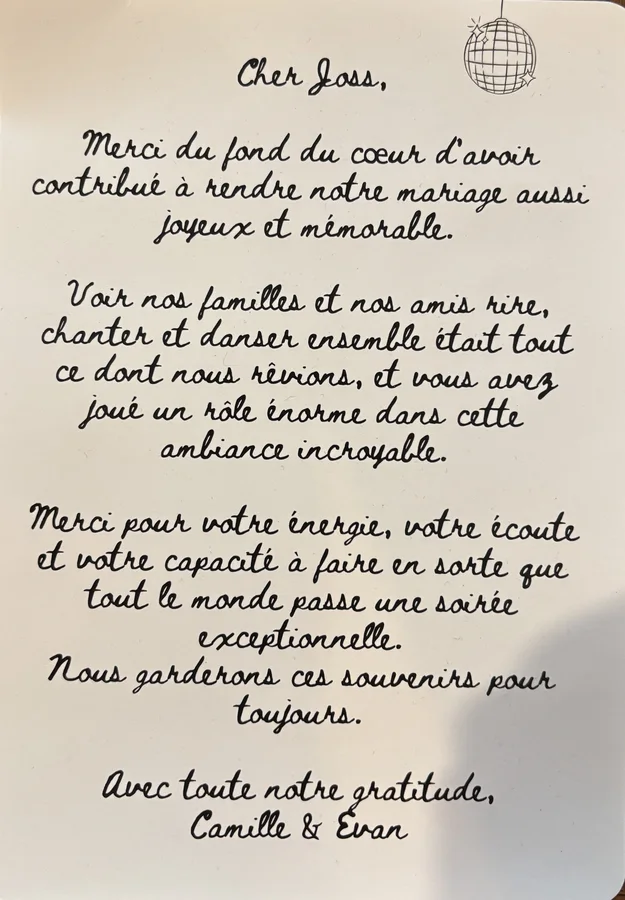 Cher Joss,
Merci du fond du cœur d'avoir
contribué à rendre notre mariage aussi
joyeux et mémorable.
Voir nos familles et nos amis rire,
chanter et danser ensemble était tout
ce dont nous rêvions, et vous avez
joué un rôle énorme dans cette
ambiance incroyable.
Merci pour votre énergie, votre écoute
et votre capacité à faire en sorte que
tout le monde passe une soirée
exceptionnelle.
Nous garderons ces souvenirs pour
toujours.
Avec toute notre gratitude,
Camille & Evan